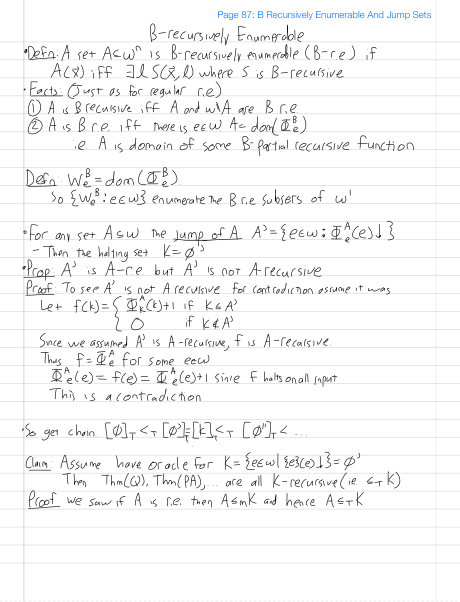 Page 87: B Recursively Enumerable And Jump Sets
B-recursively Enumerable
• Defn: A set A⊆ωⁿ is B-recursively enumerable (B-r.e) if
A(x⃗) iff ∃l S(x⃗,l) where S is B-recursive
• Facts: (Just as for regular r.e)
① A is B recursive iff A and ω\A are B r.e
② A is B r.e. iff there is e∈ω A=dom(Φₑᴮ)
i.e A is domain of some B-partial recursive function
Defn: Wₑᴮ = dom(Φₑᴮ)
So {Wₑᴮ : e∈ω} enumerate the B r.e subsers of ω¹
• For any set A⊆ω the jump of A A' = {e∈ω : Φₑᴬ(e)↓}
- Then the halting set K=∅'
• Prop: A' is A-r.e but A' is not A-recursive
Proof: To see A' is not A recursive for contradiction assume it was
Let f(k) = { Φₖᴬ(k)+1 if k∈A'
0 if k∉A'
Since we assumed A' is A-recursive, f is A-recursive
Thus f=Φₑᴬ for some e∈ω
Φₑᴬ(e) = f(e) = Φₑᴬ(e)+1 since f halts on all input
This is a contradiction
• So get chain [∅]_T <_T [∅']_T=[K]_T <_T [∅'']_T < ...
Claim: Assume have oracle for K = {e∈ω | {e}(e)↓} = ∅'
Then Thm(Q), Thm(PA), ... are all K-recursive (ie ≤_T K)
Proof we saw if A is r.e. then A≤mK and hence A≤_T K